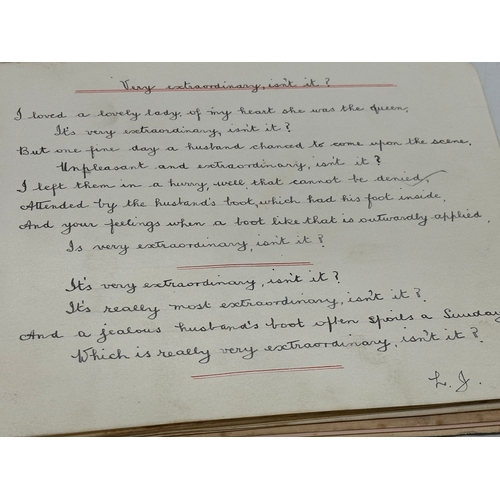 Very extraordinary, isn't it?
I loved a lovely lady, of my heart she was the queen,
It's very extraordinary, isn't it?
But one fine day a husband chanced to come upon the scene,
Unpleasant and extraordinary, isn't it?
I left them in a hurry, well, that cannot be denied,
Attended by the husband's boot, which had his foot inside,
And your feelings when a boot like that is outwardly applied,
Is very extraordinary, isn't it?
It's very extraordinary, isn't it?
It's really most extraordinary, isn't it?
And a jealous husband's boot often spoils a Sunday
Which is really very extraordinary, isn't it?
L. J.